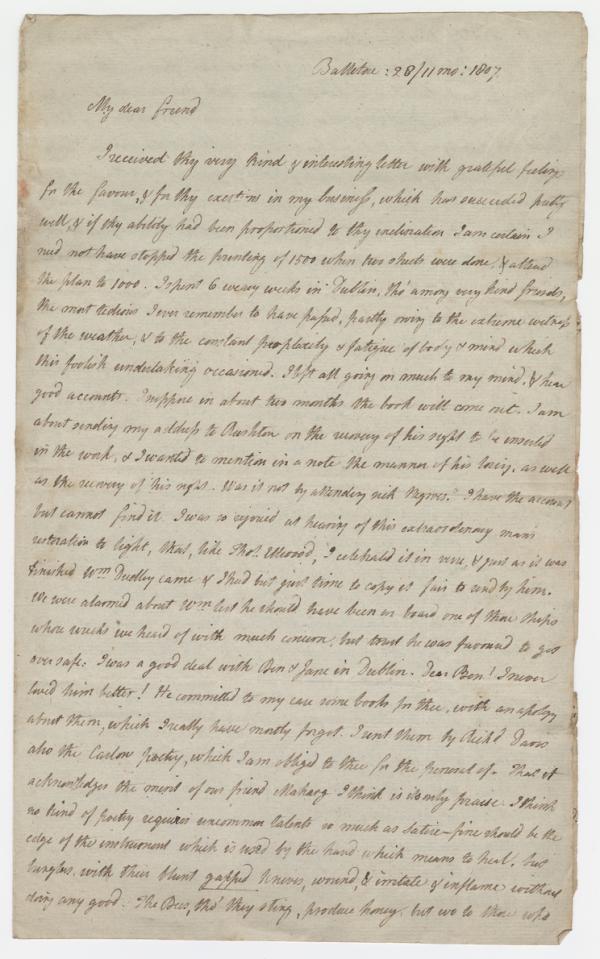 Ballitore: 28/11mo: 1807.
My dear friend
I received thy very kind & interesting letter with grateful feelings
for the favour, & for thy exertions in my business, which has succeeded pretty
well, & if thy ability had been proportioned to thy inclination I am certain I
need not have stopped the printing of 1500 when two sheets were done, &
the plan to 1000. I spent 6 weary weeks in Dublin, tho' among very kind friends,
the most tedious I ever remember to have passed, partly owing to the extreme wetness
of the weather, & to the constant perplexity & fatigue of body & mind which
this foolish undertaking occasioned. I left all going on much to my mind, & hear
good accounts. I suppose in about two months the book will come out. I am
about sending my address to Rushton on the recovery of his sight to be inserted
in the work, & I wanted to mention in a note the manner of his losing, as well
as the recovery of his sight. Was it not by attending sick Negroes? I have the account
but cannot find it. I was so rejoiced at hearing of this extraordinary man's
restoration to light, that, like Thos. Ellwood, I celebrated it in verse, & just as it was
finished Wm Dudley came & I had but just time to copy it fair to send by him.
We were alarmed about Wm lest he should have been on board one of those ships
whose wrecks we heard of with much concern, but trust he was favoured to get
over safe. I was a good deal with Ben & Jane in Dublin. Dear Ben! I never
loved him better! He committed to my care some books for thee, with an apology
about them, which I really have mostly forgot. I sent them by Richd Davis
also the Carlow poetry, which I am obliged to thee for the perusal of. That it
acknowledges the merit of our friend Maharg I think is its only praise. I think
no kind of poetry requires uncommon talents so much as Satire - fine should be the
edge of the instrument which is used by the hand which means to heal, but
burglers, with their blunt gapped knives, wound, & irritate & inflame without
doing any good. The Bees, tho' they sting, produce honey, but wo to those who